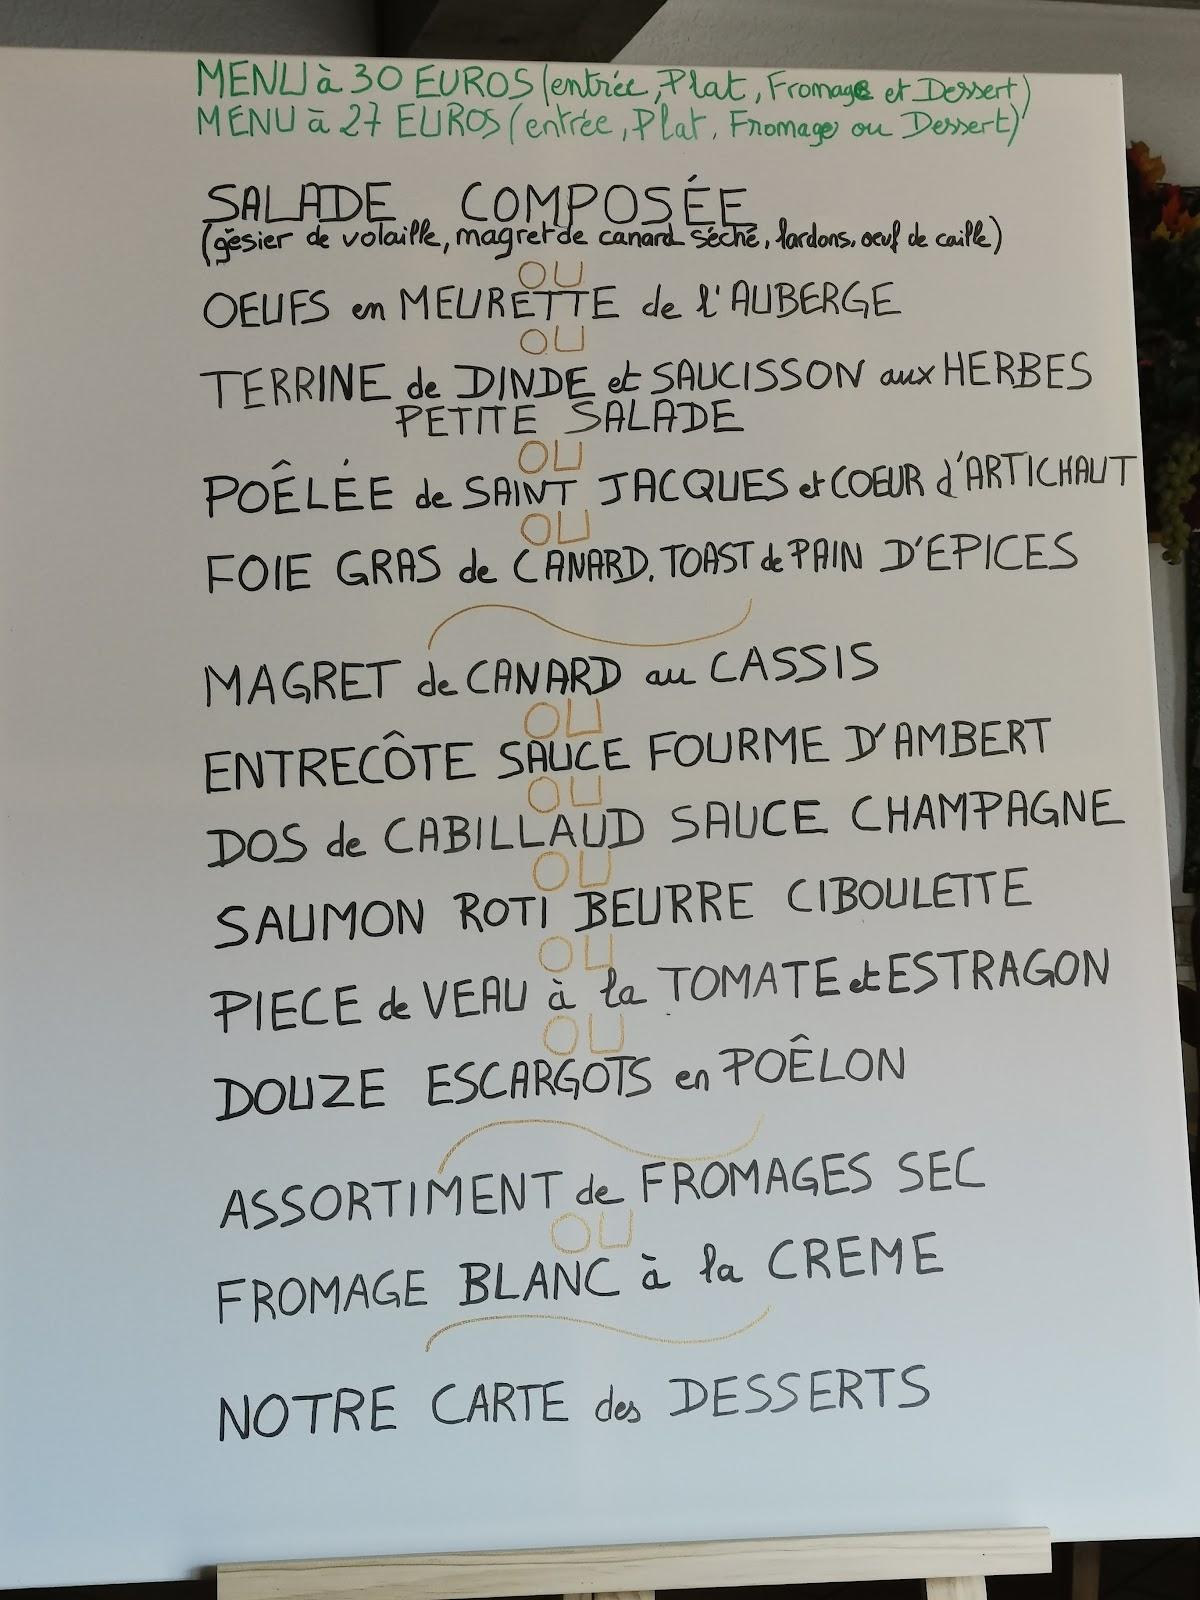 MENU à 30 EUROS (entrée, Plat, Fromage et Dessert)
MENU à 27 EUROS (entrée, Plat, Fromage ou Dessert)
SALADE COMPOSÉE
(gésier de volaille, magret de canard séché, lardons, oeuf de caille)
OU
OEUFS en MEURETTE de l'AUBERGE
OU
TERRINE de DINDE et SAUCISSON aux HERBES
PETITE SALADE
OU
POÊLÉE de SAINT JACQUES et COEUR d'ARTICHAUT
OU
FOIE GRAS de CANARD, TOAST de PAIN D'EPICES
MAGRET de CANARD au CASSIS
OU
ENTRECÔTE SAUCE FOURME D'AMBERT
OU
DOS de CABILLAUD SAUCE CHAMPAGNE
OU
SAUMON ROTI BEURRE CIBOULETTE
OU
PIECE de VEAU à la TOMATE et ESTRAGON
OU
DOUZE ESCARGOTS en POÊLON
ASSORTIMENT de FROMAGES SEC
OU
FROMAGE BLANC à la CREME
NOTRE CARTE des DESSERTS